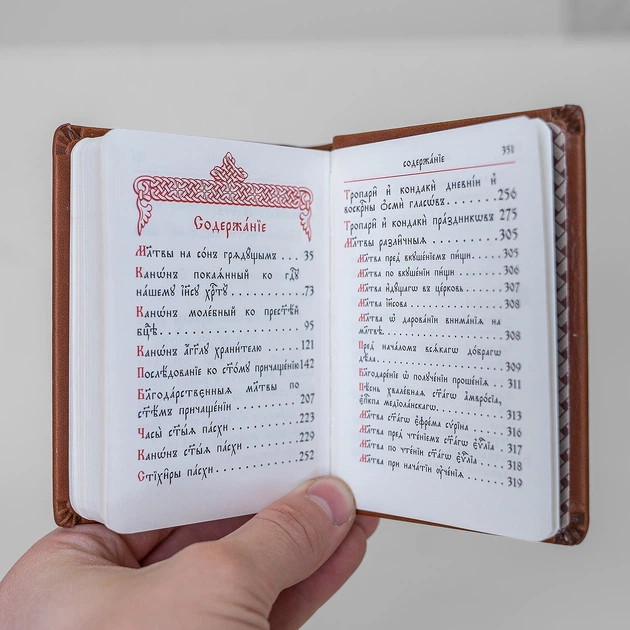 Содержа́нїе
Мл҃твы на со́нъ грѧду́щымъ . . . 35
Канѡ́нъ покаѧ́нный ко гдⷭ҇ꙋ
на́шемꙋ і҆и҃сꙋ хрⷭ҇тꙋ̀ . . . . . . . . . 73
Канѡ́нъ моле́бный ко прест҃ѣ́й
бцⷣѣ . . . . . . . . . . . . . . . . 95
Канѡ́нъ а҆́гг҃лꙋ храни́телю . . . . . 121
Послѣ́дованїе ко ст҃о́мꙋ причаще́нїю 142
Бл҃года́рственныѧ мл҃твы по
ст҃ѣ́мъ причаще́нїи . . . . . . . . 207
Часы̀ ст҃ы́ѧ па́схи . . . . . . . . 223
Канѡ́нъ ст҃ы́ѧ па́схи . . . . . . . 229
Стїхи̑ры па́схи . . . . . . . . . . 252
содержа́нїе 351
Тропарѝ и҆ кондакѝ дне́внїи и҆
воскрⷭ҇ны ѻ҆смѝ гласѡ́въ . . . . . . . 256
Тропарѝ и҆ кондакѝ пра́здникѡвъ 275
Мл҃твы разли̑чныѧ . . . . . . . . 305
Мл҃тва пред̾ вкꙋше́нїемъ пи́щи . . . . . 305
Мл҃тва по вкꙋше́нїи пи́щи . . . . . . . 306
Мл҃тва и҆дꙋ́щагѡ въ це́рковь . . . . . . 307
Мл҃тва і҆и҃сова . . . . . . . . . . . . . 308
Мл҃тва ѡ҆ дарова́нїи внима́нїѧ на
мл҃твѣ . . . . . . . . . . . . . . . . 308
Пред̾ нача́ломъ всѧ́кагѡ до́брагѡ
дѣ́ла . . . . . . . . . . . . . . . . . 309
Бл҃годаре́нїе ѡ҆ полꙋче́нїи проше́нїѧ . . 311
Пѣ́снь хвале́бнаѧ ст҃а́гѡ а҆мвро́сїа,
є҆пⷭ҇кпа медїола́нскагѡ . . . . . . . . . 313
Мл҃тва ст҃а́гѡ є҆фре́ма сѵ́рїна . . . . . 316
Мл҃тва пред̾ чте́нїемъ ст҃а́гѡ є҆ѵⷢ҇лїа . 317
Мл҃тва по чте́нїи ст҃а́гѡ є҆ѵⷢ҇лїа . . . 318
Мл҃тва при нача́тїи ᲂу҆че́нїѧ . . . . . . 319